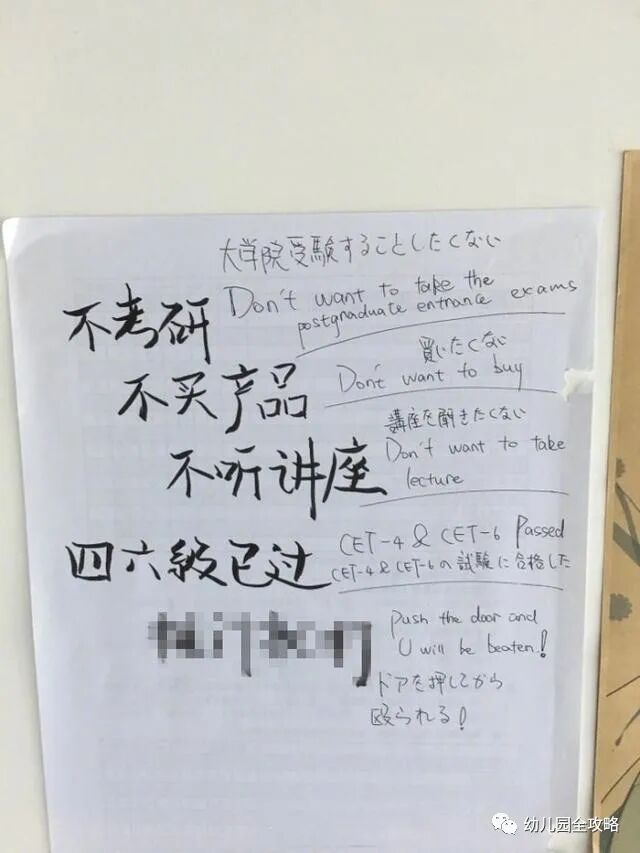 大学院受験することしたくない
不考研
Don't want to take the
postgraduate entrance exams
不买产品
買いたくない
Don't want to buy
不听讲座
講座を聞きたくない
Don't want to take
lecture
四六級已过
CET-4 & CET-6 Passed
CET-4 & CET-6の試験に合格した
Push the door and
U will be beaten!
ドアを押してから
殴られる!
幼儿园全攻略